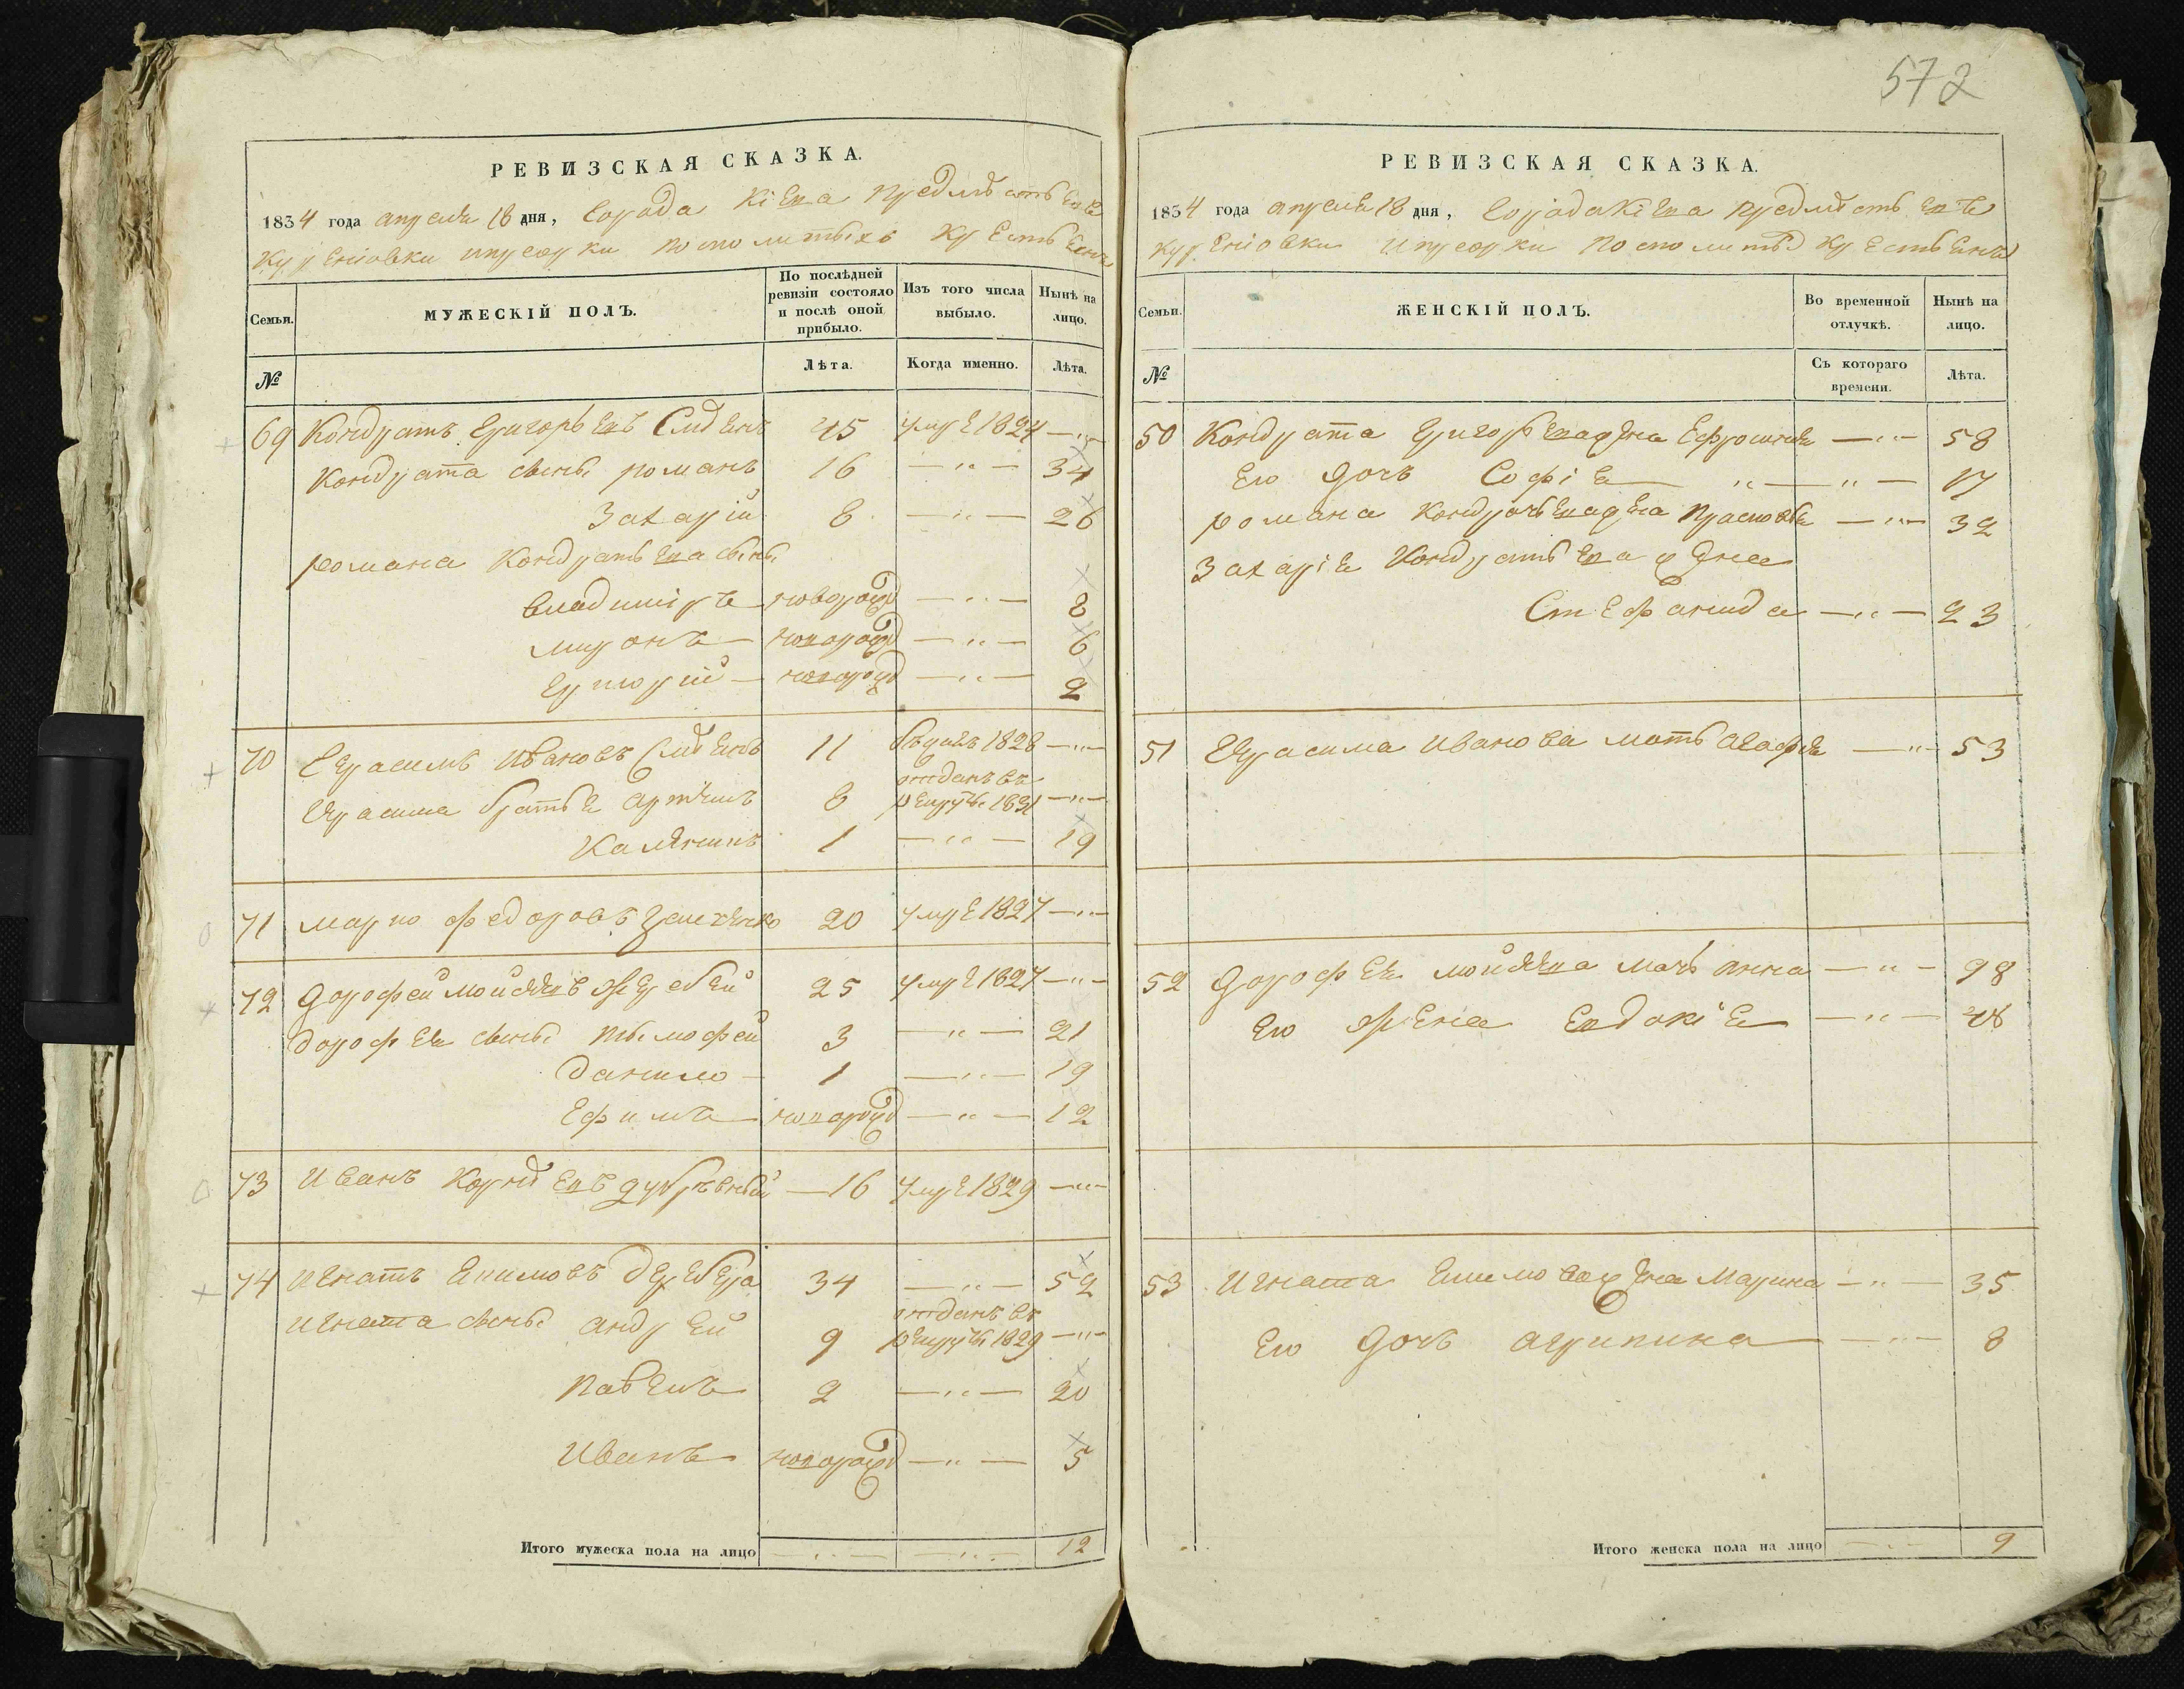 572
РЕВИЗСКАЯ СКАЗКА.
1834 года апреля 18 дня, Города Кіева Предмѣстьевъ
Куреніовки Приорки посполитыхъ крестьянъ
Семьи.
МУЖЕСКІЙ ПОЛЪ.
По послѣдней ревизіи состояло и послѣ оной прибыло.
Изъ того числа выбыло.
Нынѣ на лицо.
№
Лѣта.
Когда именно.
Лѣта.
69 Кондратъ Григорьевъ 45 умре 1824 —〃—
Кондрата сыны Романъ 16 —〃— 34
Захарій 8 —〃— 26
Романа Кондратьева сыны
Владиміръ новорожд —〃— 8
Миронъ — новорожд —〃— 6
Григорій — новорожд —〃— 2
70 Герасимъ Ивановъ 11 бѣжалъ 1828 —〃—
отданъ въ
Герасима братья Артемъ 8 рекруты 1831 —〃—
Каленикъ 1 —〃— 19
71 Марко Федоровъ 20 умре 1827 —〃—
72 Дорофей Мойсеевъ Жеребей 25 умре 1827 —〃—
Дорофея сыны Тымофей 3 —〃— 21
Данило — 1 —〃— 19
Ефимъ — новорожд —〃— 12
73 Иванъ Корнѣевъ — 16 умре 1829 —〃—
74 Игнатъ Екимовъ Дереберя 34 —〃— 52
отданъ въ
Игната сыны Андрей 9 рекруты 1829 —〃—
Павелъ 2 —〃— 20
Иванъ новорожд —〃— 5
Итого мужеска пола на лицо —〃— —〃— 12
РЕВИЗСКАЯ СКАЗКА.
1834 года апреля 18 дня, Города Кіева Предмѣстьевъ
Куреніовки Приорки посполитыхъ крестьянъ
Семьи.
ЖЕНСКІЙ ПОЛЪ.
Во временной отлучкѣ.
Нынѣ на лицо.
№
Съ котораго времени.
Лѣта.
50 Кондрата Григорьева жена Ефросинія —〃— 58
Его дочь Софія — 〃 — 〃 — 17
Романа Кондратьева жена —〃— 32
Захарія Кондратьева жена
Стефанида —〃— 23
51 Герасима Иванова мать Агафія —〃— 53
52 Дорофея Мойсеева мать Анна —〃— 98
Его жена Евдокія —〃— 46
53 Игната Екимова жена Марина —〃— 35
Его дочь Агрипина —〃— 8
Итого женска пола на лицо —〃— 9